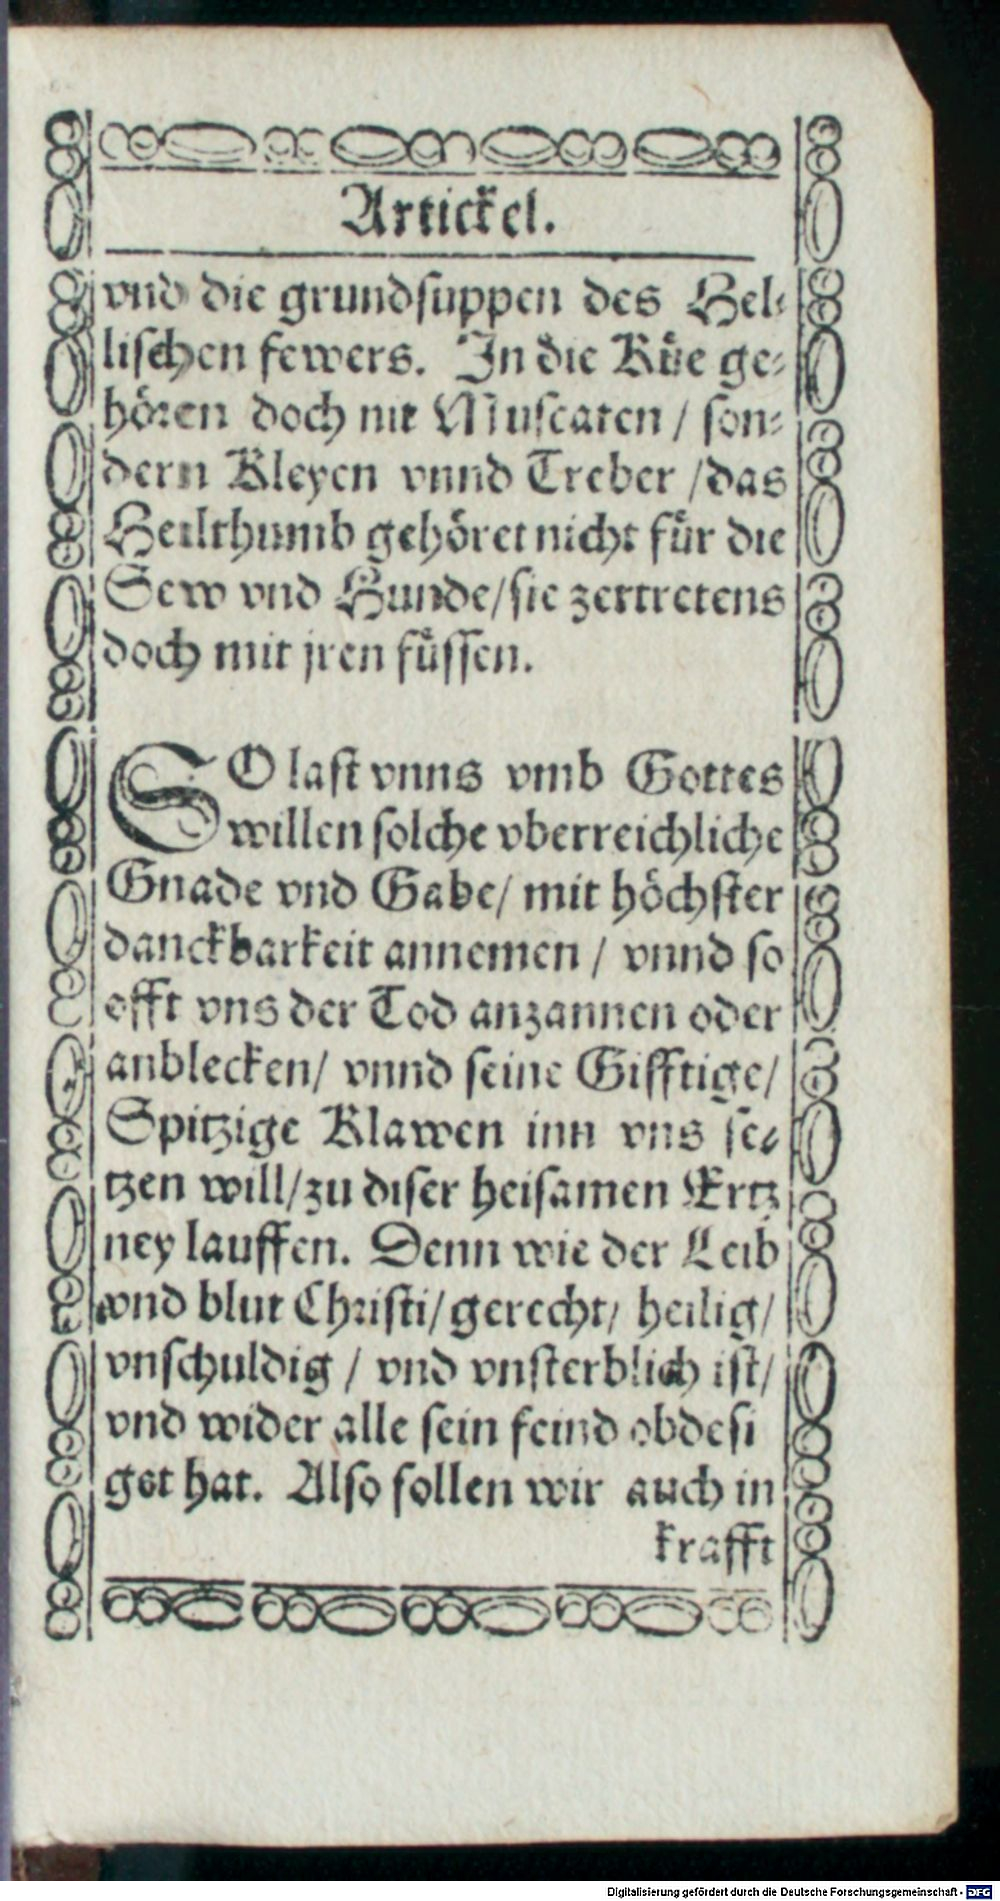 Artickel.
vnd die grundsuppen des Hel-
lischen fewers. In die Küe ge-
hören doch nit Muscaten / son-
dern Kleyen vnnd Treber / das
Heilthumb gehöret nicht für die
Sew vnd Hunde / sie zertretens
doch mit jren füssen.
SO last vnns vmb Gottes
willen solche vberreichliche
Gnade vnd Gabe / mit höchster
danckbarkeit annemen / vnnd so
offt vns der Tod anzannen oder
anblecken / vnnd seine Gifftige /
Spitzige Klawen inn vns se-
tzen will / zu diser heisamen Ertz
ney lauffen. Denn wie der Leib
vnd blut Christi / gerecht / heilig /
vnschuldig / vnd vnsterblich ist /
vnd wider alle sein feind obdesi
get hat. Also sollen wir auch in
krafft
Digitalisierung gefördert durch die Deutsche Forschungsgemeinschaft - DFG